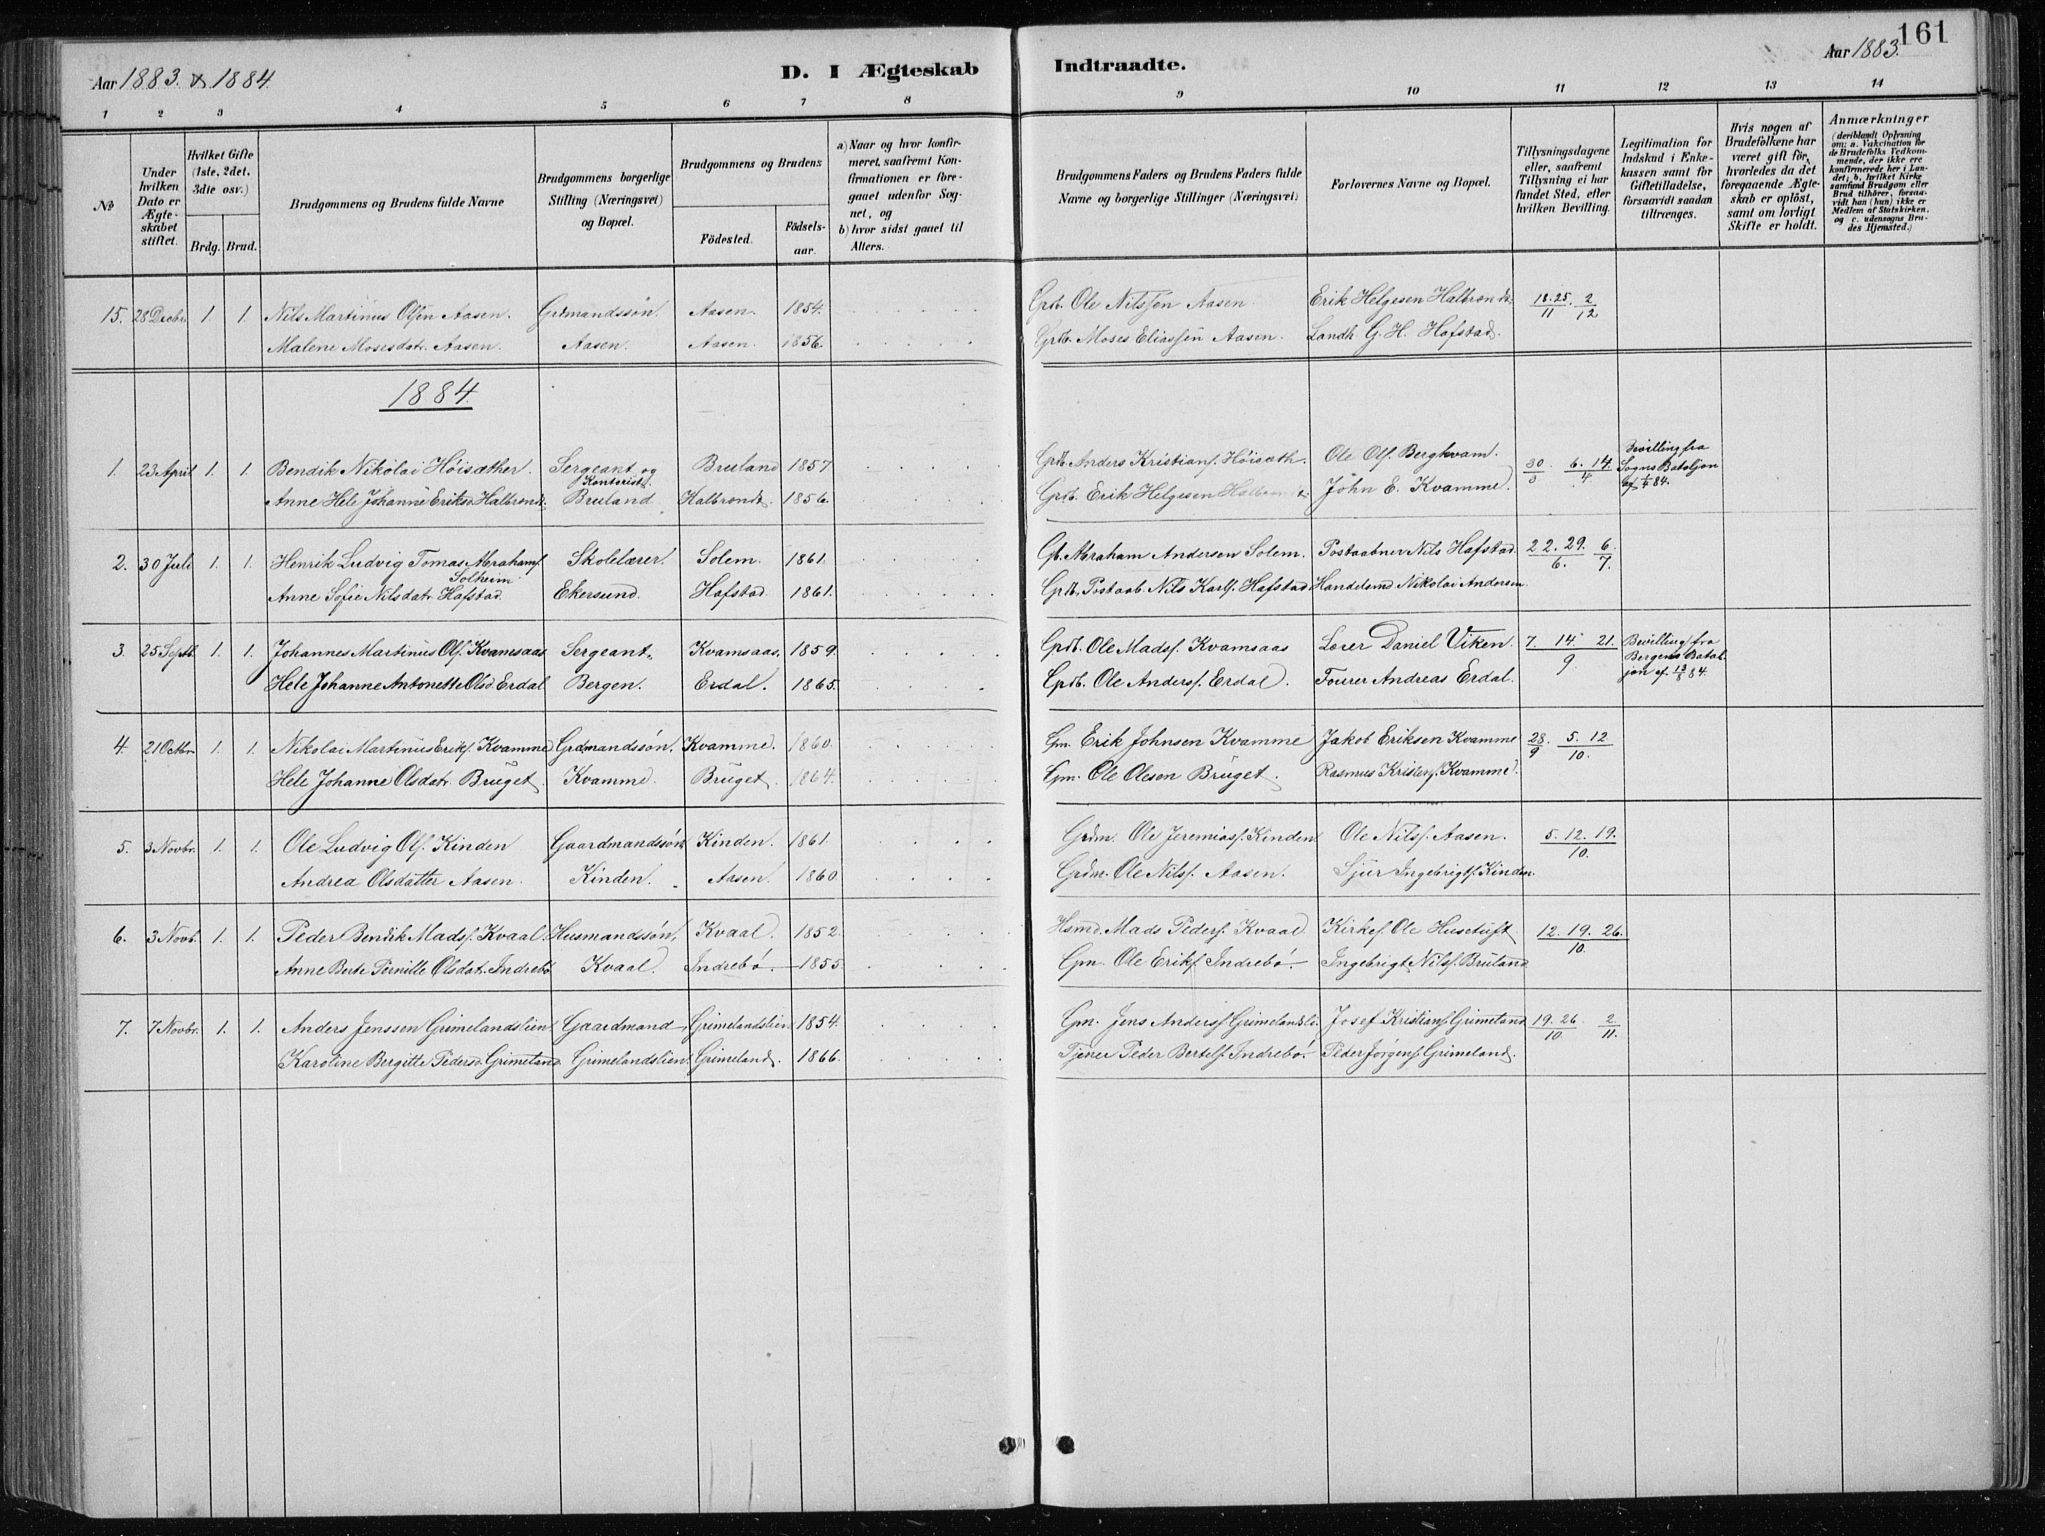 161
Aar 1883 & 1884.
D. I Ægteskab Indtraadte.
Aar 1883.
1 2 3 4 5 6 7 8 9 10 11 12 13 14
No
Under hvilken Dato er Ægteskabet stiftet.
Hvilket Gifte (1ste, 2det, 3die osv.)
Brdg. Brud.
Brudgommens og Brudens fulde Navne
Brudgommens borgerlige Stilling (Næringsvei) og Bopæl.
Brudgommens og Brudens
Födested.
Födselsaar.
a) Naar og hvor konfirmeret, saafremt Konfirmationen er foregaaet udenfor Sognet, og
b) hvor sidst gaaet til Alters.
Brudgommens Faders og Brudens Faders fulde Navne og borgerlige Stillinger (Næringsvei)
Forlovernes Navne og Bopæl.
Tillysningsdagene eller, saafremt Tillysning ei har fundet Sted, efter hvilken Bevilling.
Legitimation for Indskud i Enkekassen samt for Giftetilladelse, forsaavidt saadan tiltrænges.
Hvis nogen af Brudefolkene har været gift för, hvorledes da det foregaaende Ægteskab er oplöst, samt om lovligt Skifte er holdt.
Anmærkninger (deriblandt Oplysning om: a. Vakcination for de Brudefolks Vedkommende, der ikke ere konfirmerede her i Landet; b. hvilket Kirkesamfund Brudgom eller Brud tilhörer, forsavidt han (hun) ikke er Medlem af Statskirken, og c. udensogns Brudes Hjemsted.)
15. 28 Decbr. 1. 1. Nils Martinus Olsen Aasen. Grdmandssön. Aasen. 1854. Grdb. Ole Nilssen Aasen. Erik Helgesen Halbrend. 18. 25./11 2/12
Malene Mosesdatr. Aasen. Aasen. Aasen. 1856. Grdb. Moses Eliassen Aasen. Landh. G. H. Hafstad.
1884.
1. 23 April 1. 1. Bendik Nikolai Höisæther. Sergeant og Kontorist. Bruland 1857. Grdb. Anders Kristians. Höisæth. Ole Ols. Bergkvam. 30/3 6. 14./4 Bevilling fra Sogns Bataljon af 1/4 84.
Anne Hele Johanne Eriksd. Halbrend. Bruland. Halbrend. 1856. Grdb. Erik Helgesen Halbrend. John E. Kvamme.
2. 30 Juli 1. 1. Henrik Ludvig Tomas Abrahams. Solheim. Skolelærer. Solem. 1861. Gb. Abraham Andersen Solem. Postaabner Nils Hafstad. 22. 29./6. 6/7
Anne Sofie Nilsdatr. Hafstad. Ekersund. Hafstad. 1861. Grdb. Postaab. Nils Karls. Hafstad Handelsmd Nikolai Andersen
3. 25 Septb. 1. 1. Johannes Martinus Ols. Kvamsaas Sergeant. Kvamsaas. 1859. Grdb. Ole Mads. Kvamsaas Lærer Daniel Viken 7. 14. 21./9 Bevilling fra Bergens Bataljon af 13/8 84.
Hele Johanne Antonette Olsd. Erdal Bergen. Erdal. 1865. Grdb. Ole Anders. Erdal. Fourer Andreas Erdal.
4. 21 Octbr. 1. 1. Nikolai Martinus Eriks. Kvamme Grdmandssön. Kvamme. 1860. Gm. Erik Johnsen Kvamme Jakob Eriksen Kvamme 28/9 5. 12/10.
Hele Johanne Olsdatr. Bruget. Kvamme. Bruget. 1864. Gm. Ole Oleson Bruget. Rasmus Kristens. Kvamme.
5. 3 Novbr. 1. 1. Ole Ludvig Ols. Kinden Gaardmandssön Kinden. 1861. Grdm. Ole Jeremias. Kinden. Ole Nils. Aasen. 5. 12. 19./10.
Andrea Olsdatter Aasen. Kinden. Aasen. 1860. Grdm. Ole Nils. Aasen. Sjur Ingebrigts. Kinden.
6. 3 Novb. 1. 1. Peder Bendik Mads. Kvaal. Husmandssön, Kvaal. 1852. Hsmd. Mads Peders. Kvaal Kirkes. Ole Husetuft. 12. 19. 26./10.
Anne Berte Pernille Olsdat. Indrebö Kvaal. Indrebö. 1855. Gm. Ole Eriks. Indrebö. Ingebrigt Nils. Bruland
7. 7 Novbr. 1. 1. Anders Jenssen Grimelandslien Gaardmand Grimelandslien 1854. Gm. Jens Anders. Grimelandsli. Josef Kristians. Grimeland 19. 26/10. 2/11.
Karoline Bergitte Pedersd. Grimeland Grimelandslien. Grimeland. 1866. Tjener Peder Bertels. Indrebö. Peder Jörgens. Grimeland.